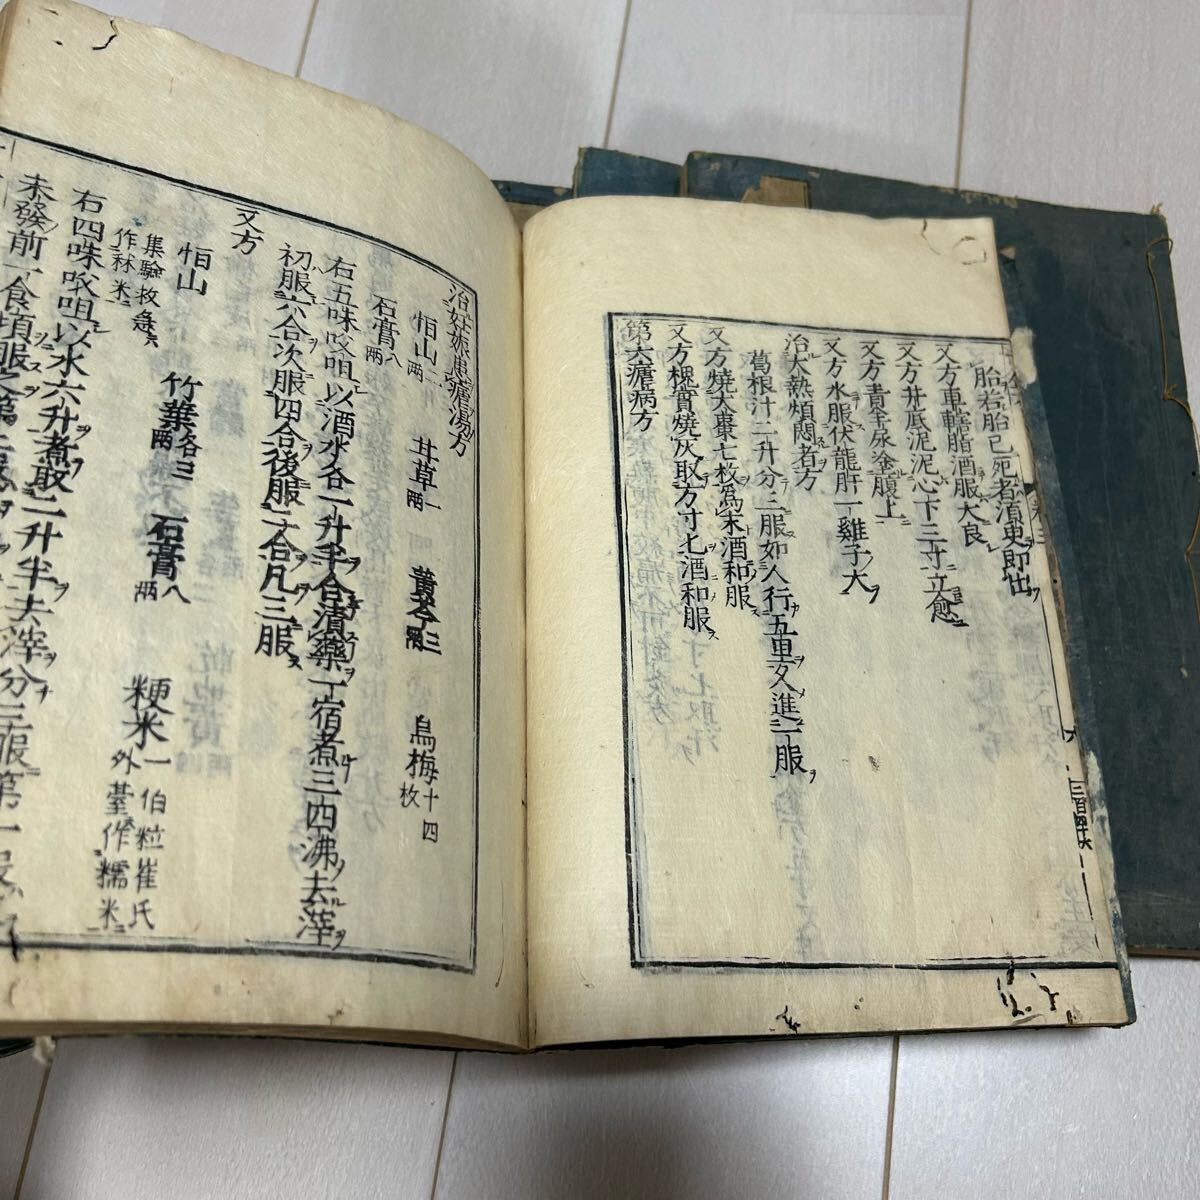 胎若胎已死者須臾即出
又方車轄脂酒服大良
又方井底泥泥心下三寸立愈
又方青羊尿塗腹上
又方水服伏龍肝一雞子大
治大熱煩悶者方
葛根汁二升分三服如人行五里又進一服
又方燒大棗七枚爲末酒和服
又方槐實燒灰取方寸匕酒和服
第六瘧病方
治妊娠患瘧湯方
恒山二兩 甘草一兩 黄芩三兩 烏梅十四枚
石膏八兩
右五味㕮咀以酒水各一升半合漬藥一宿煮三四沸去滓
初服六合次服四合後服二合凡三服
又方
恒山 竹葉各三兩 石膏八兩 粳米一百粒崔氏外臺作糯米
集驗救急作秫米
右四味㕮咀以水六升煮取二升半去滓分三服第一服
未發前一食頃服之第二服